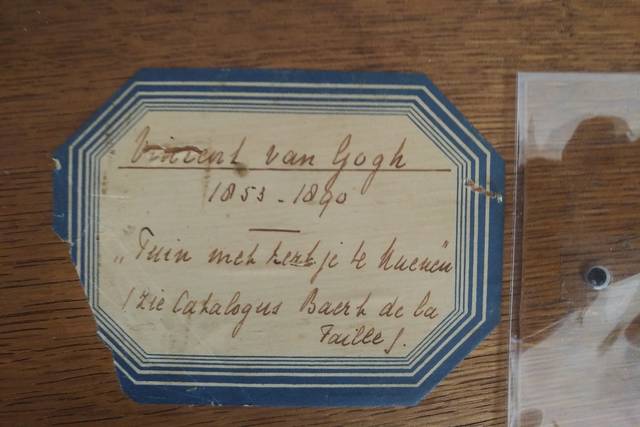 Vincent van Gogh
1853-1890
„Tuin met kerkje te Nuenen"
(zie Catalogus Baert de la
Faille).